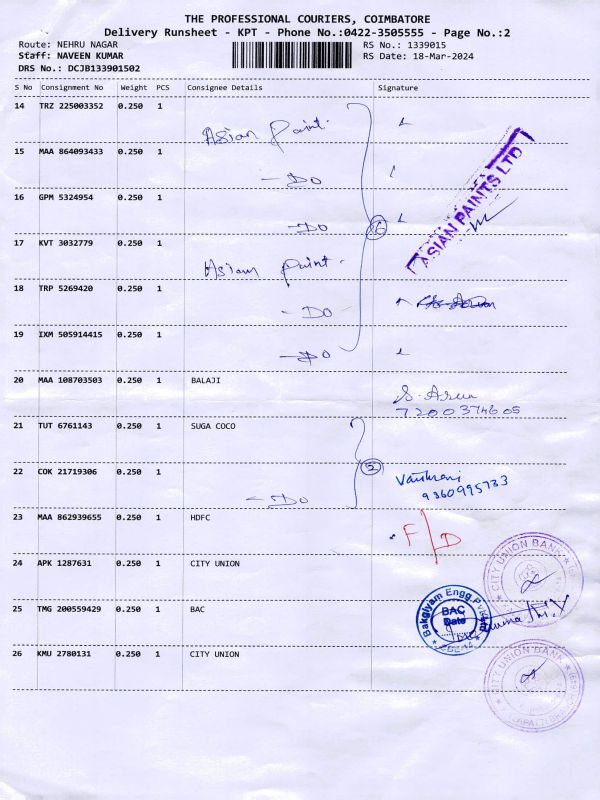 THE PROFESSIONAL COURIERS, COIMBATORE
Delivery Runsheet - KPT - Phone No.:0422-3505555 - Page No.:2
Route: NEHRU NAGAR RS No.: 1339015
Staff: NAVEEN KUMAR RS Date: 18-Mar-2024
DRS No.: DCJB133901502
S No Consignment No Weight PCS Consignee Details Signature
14 TRZ 225003352 0.250 1 Asian Paint.
15 MAA 864093433 0.250 1 - DO
16 GPM 5324954 0.250 1 - DO
ASIAN PAINTS LTD
17 KVT 3032779 0.250 1 Asian Paint.
18 TRP 5269420 0.250 1 - DO
19 IXM 505914415 0.250 1 - DO
6
20 MAA 108703503 0.250 1 BALAJI S. Arun
7200374605
21 TUT 6761143 0.250 1 SUGA COCO
22 COK 21719306 0.250 1 - DO 2
9360995733
23 MAA 862939655 0.250 1 HDFC F/D
24 APK 1287631 0.250 1 CITY UNION
CITY UNION BANK
25 TMG 200559429 0.250 1 BAC
Bakgiyam Engg Pvt Ltd
BAC
Date
26 KMU 2780131 0.250 1 CITY UNION
CITY UNION BANK